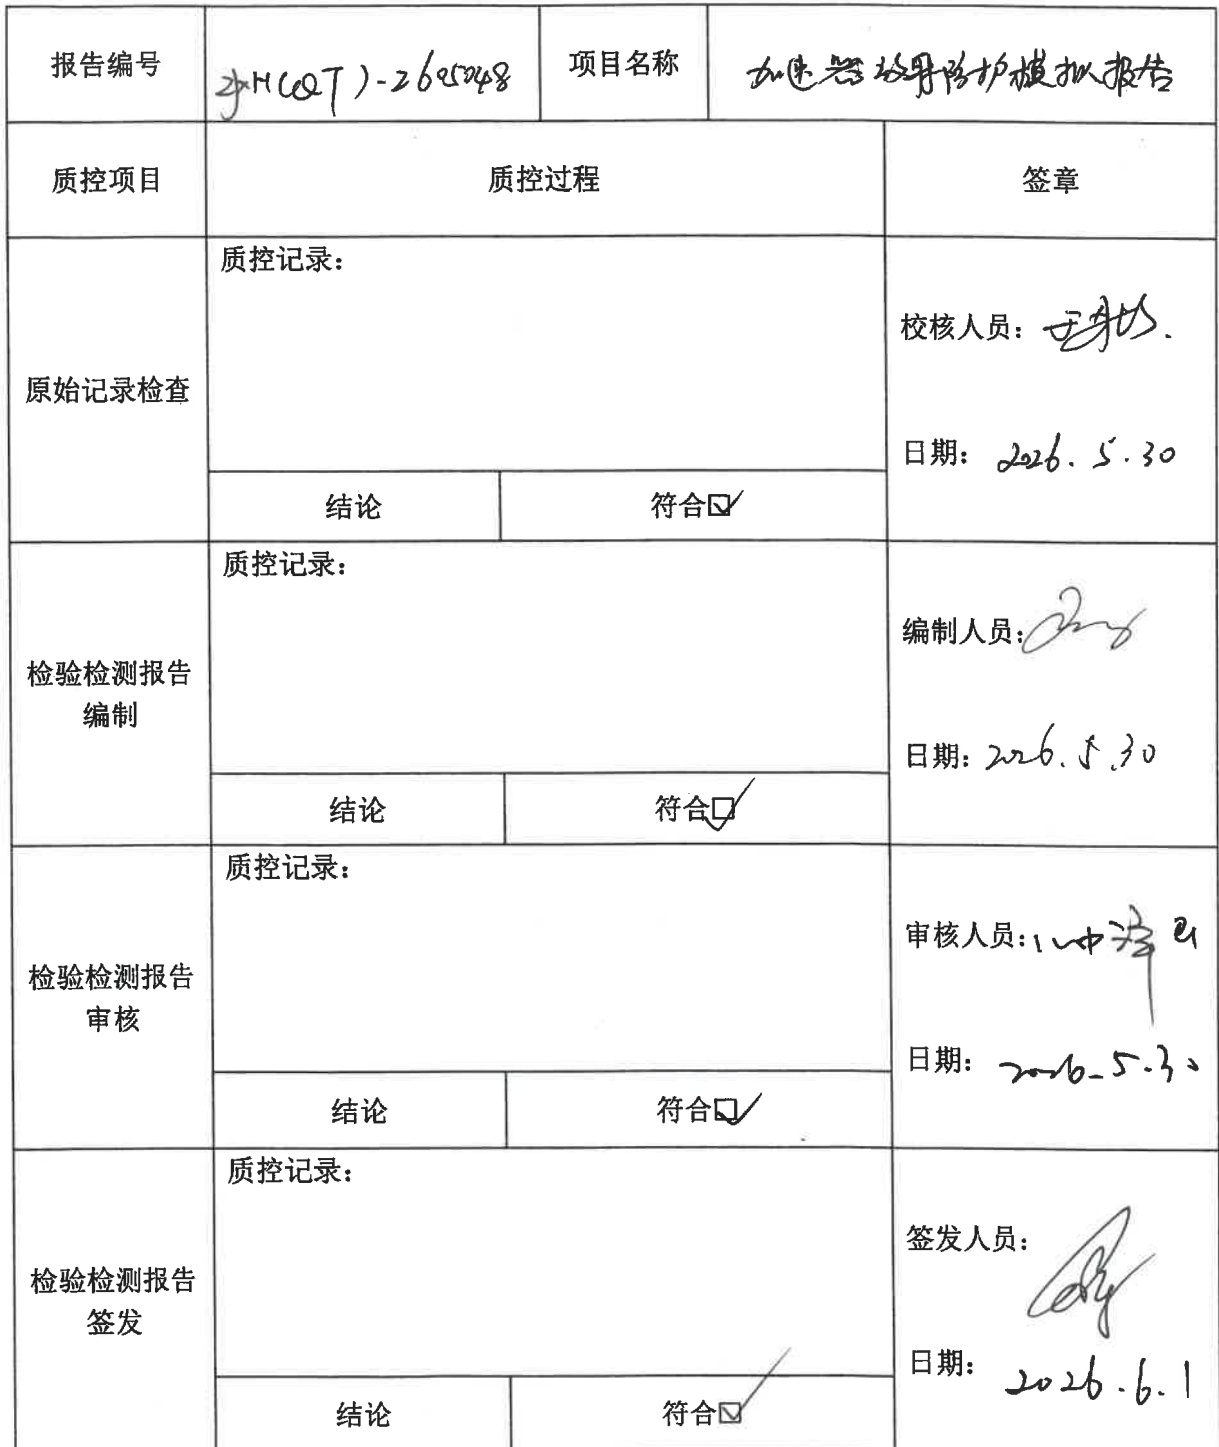 报告编号 H(QT)-2605048 项目名称 加速器辐射防护模拟报告
质控项目 质控过程 签章
原始记录检查
质控记录：
结论 符合☑
校核人员：
日期： 2026.5.30
检验检测报告
编制
质控记录：
结论 符合☑
编制人员：
日期：2026.5.30
检验检测报告
审核
质控记录：
结论 符合☑
审核人员：
日期： 2026-5-30
检验检测报告
签发
质控记录：
结论 符合☑
签发人员：
日期： 2026.6.1